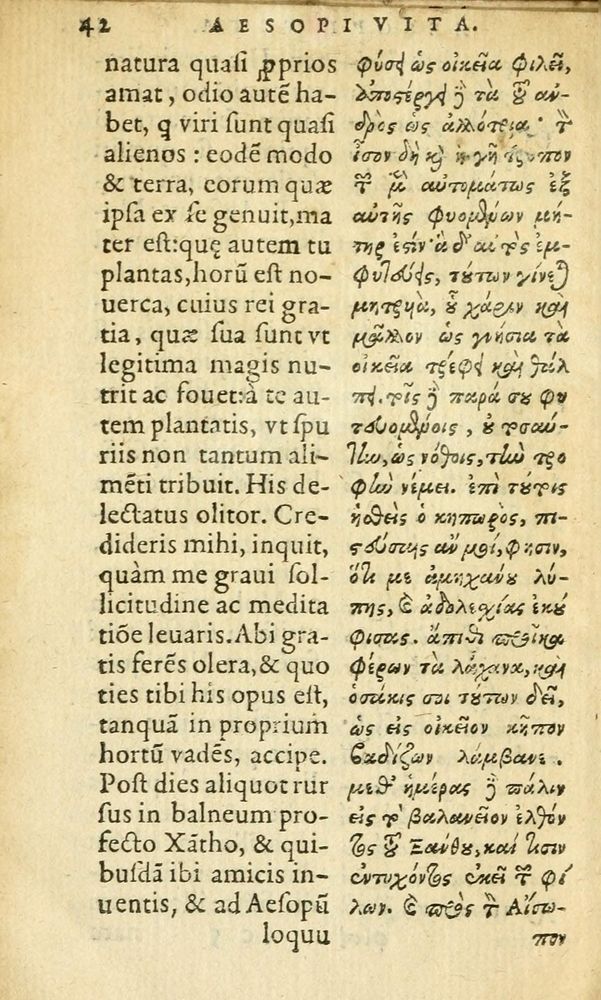 42 AESOPI VITA.
natura quasi ꝓprios
amat, odio autē ha-
bet, q̨ viri sunt quasi
alienos : eodē modo
& terra, eorum quæ
ipsa ex se genuit, ma
ter est: quę autem tu
plantas, horū est no-
uerca, cuius rei gra-
tia, quæ sua sunt vt
legitima magis nu-
trit ac fouet: à te au-
tem plantatis, vt spu
riis non tantum ali-
mēti tribuit. His de-
lectatus olitor. Cre-
dideris mihi, inquit,
quàm me graui sol-
licitudine ac medita
tiōe leuaris. Abi gra-
tis ferēs olera, & quo
ties tibi his opus est,
tanquā in proprium
hortū vadēs, accipe.
Post dies aliquot rur
sus in balneum pro-
fecto Xātho, & qui-
busdā ibi amicis in-
uentis, & ad Aesopū
loquu
φύσει ὡς οἰκεῖα φιλεῖ,
ἀποστέργει δὲ τὰ τοῦ ἀν-
δρὸς ὡς ἀλλότρια· τὸν
ἴσον δὴ καὶ ἡ γῆ τρόπον
τῶν μὲν αὐτομάτως ἐξ
αὐτῆς φυομένων μή-
τηρ ἐστίν· ἃ δ' αὐτὸς ἐμ-
φυτεύεις, τούτων γίνεται
μητρυιὰ, οὗ χάριν καὶ
μᾶλλον ὡς γνήσια τὰ
οἰκεῖα τρέφει καὶ θάλ
πει. τοῖς δὲ παρὰ σοῦ φυ
τευομένοις, οὐ τοσαύ-
την, ὡς νόθοις, τὴν τρο
φὴν νέμει. ἐπὶ τούτοις
ἡσθεὶς ὁ κηπωρὸς, πι-
στεύσῃς ἄν μοι, φησιν,
ὅτι με ἀμηχάνου λύ-
πης, καὶ ἀδολεσχίας ἐκού
φισας. ἄπιθι προῖκα
φέρων τὰ λάχανα, καὶ
ὁσάκις σοι τούτων δεῖ,
ὡς εἰς οἰκεῖον κῆπον
βαδίζων λάμβανε.
μεθ' ἡμέρας δὲ πάλιν
εἰς τὸ βαλανεῖον ἐλθόν
τος τοῦ Ξάνθου, καί τισιν
ἐντυχόντος ἐκεῖ τῶν φί
λων. καὶ πρὸς τὸν Αἴσω-
πον